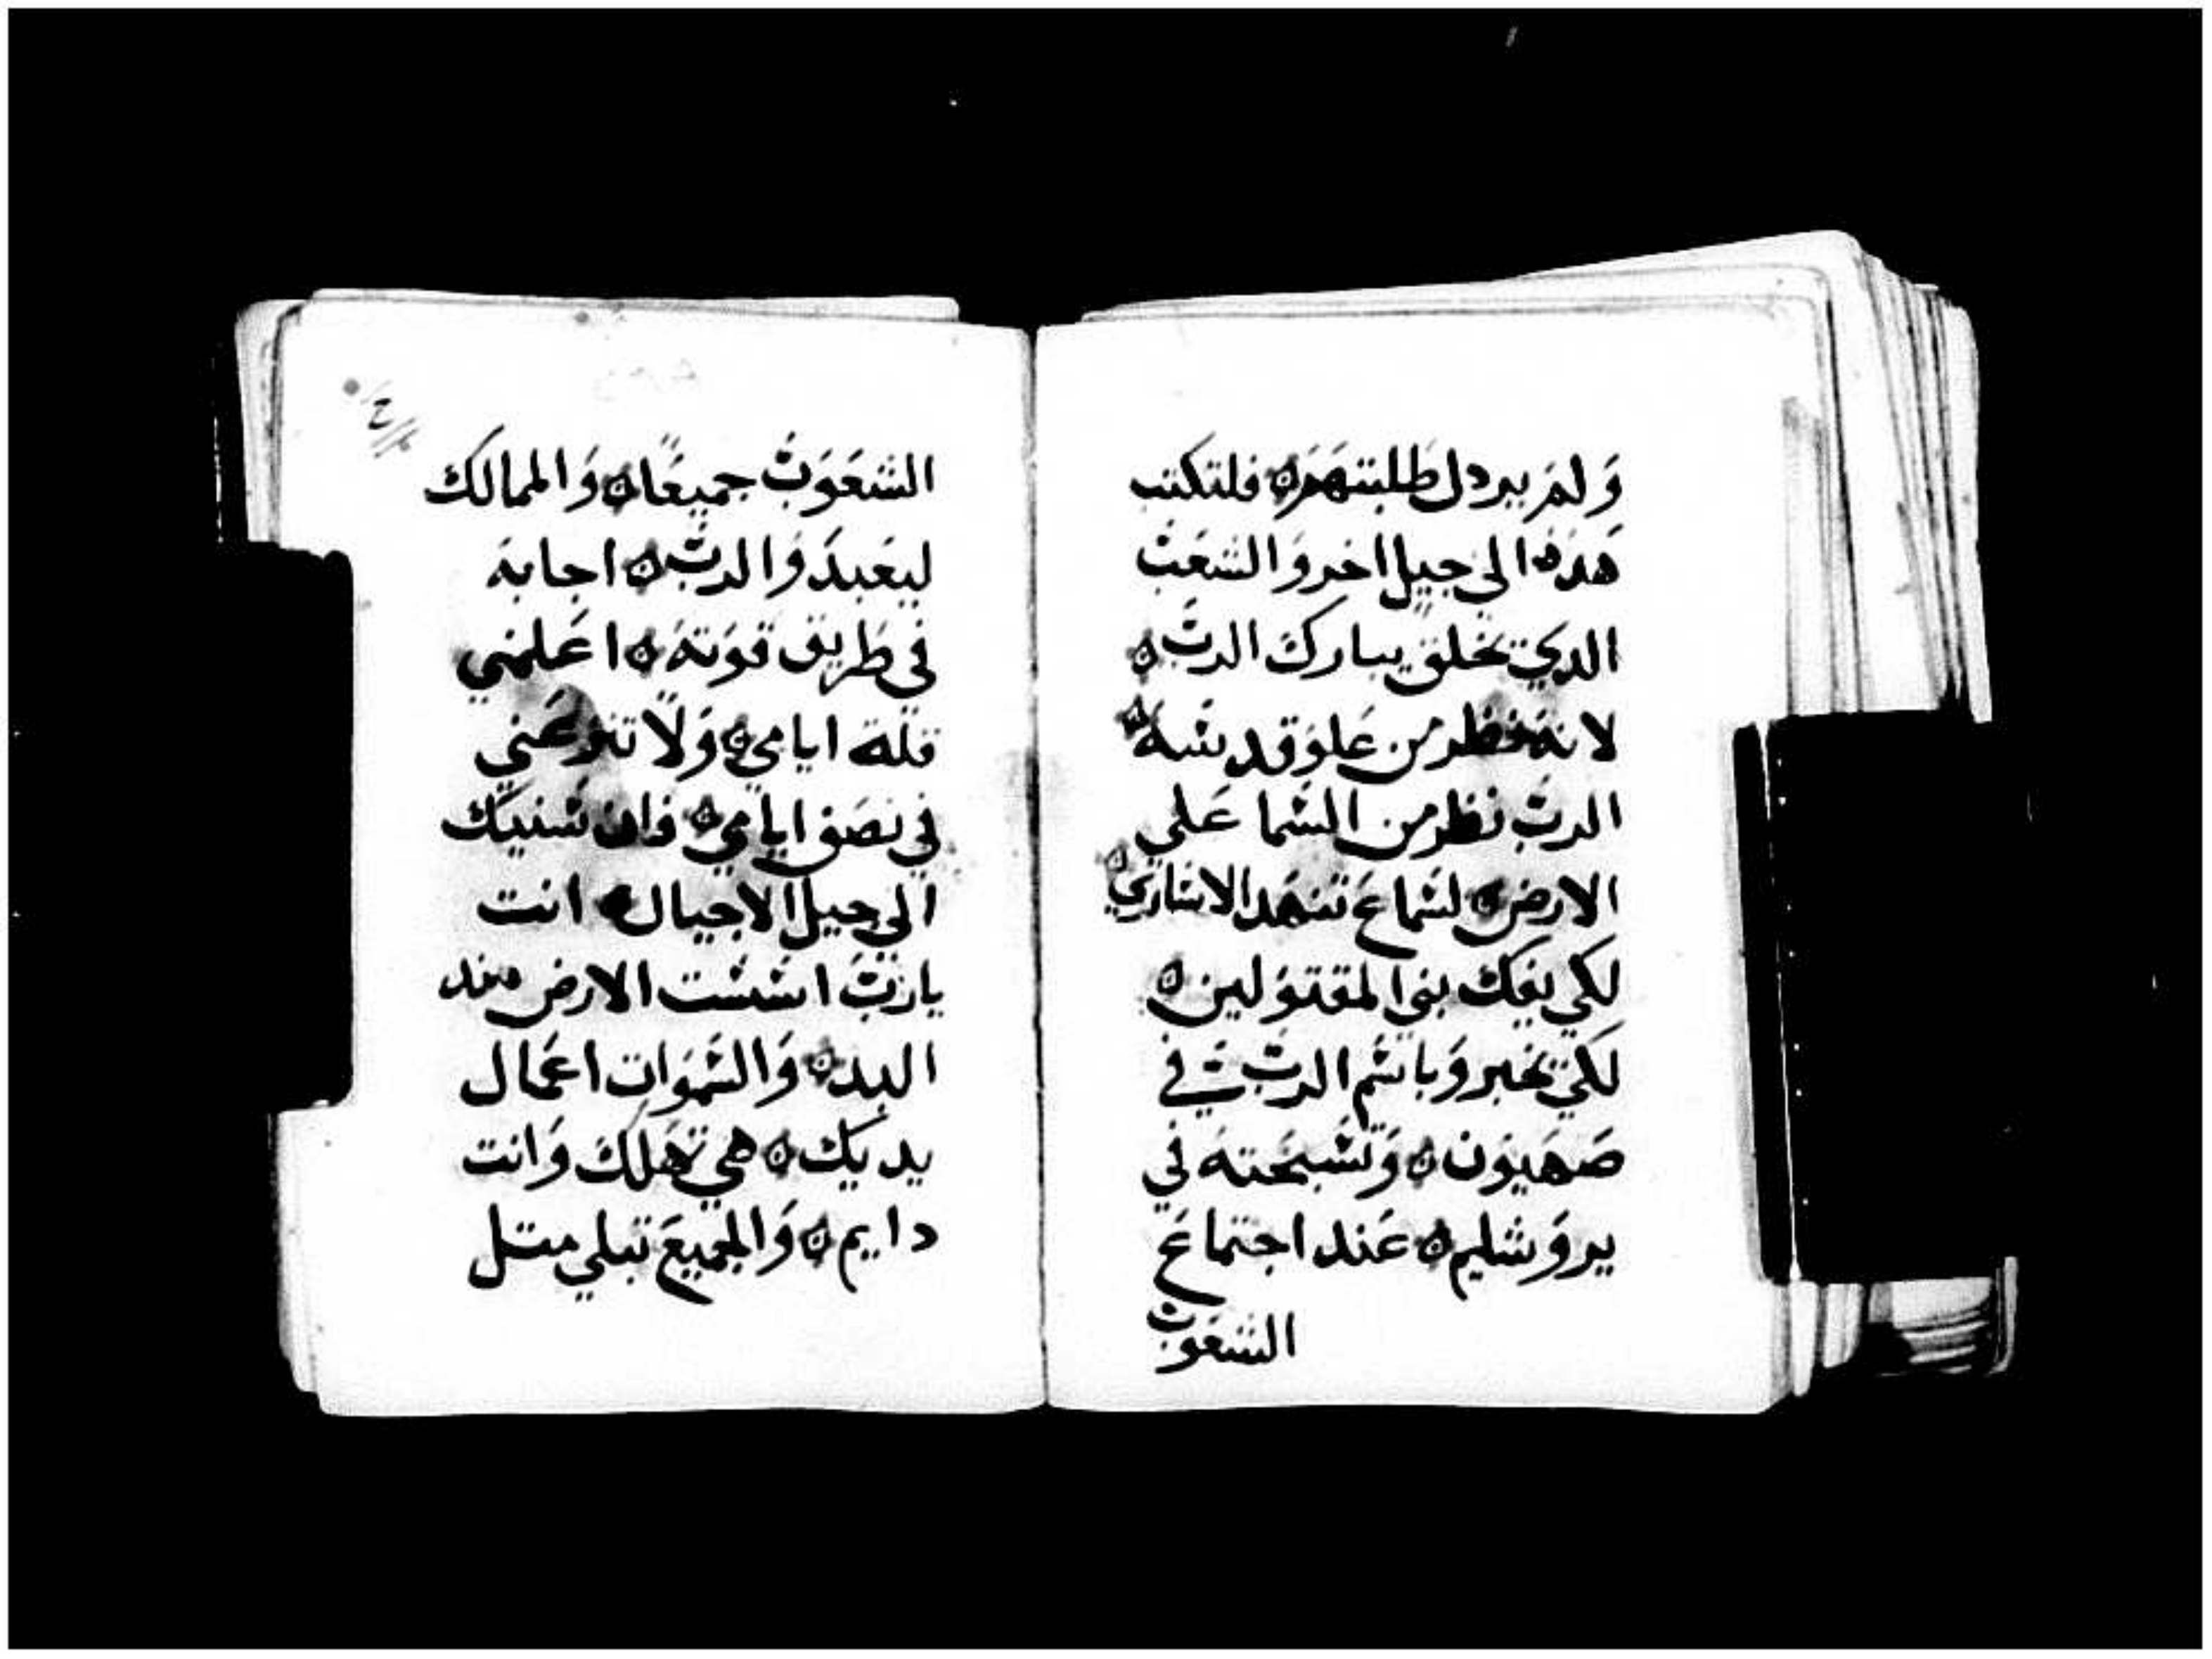 وَلمَ يردل طَلبتهَمَ ۞ فلتكتب
هَده الي جيل اخر وَالشعَبُ
الدي يخلق يبارك الربّ ۞
لانهَ من علوَ قدسهَ ۞
الربّ نظر من السَّما عَلي
الارض ۞ لسَماعَ تنهَد الاسَاري ۞
لكي يفك بنوا المقتوَلين ۞
لكي يخبروَ باسَم الربّ في
صَهيوَن ۞ وَتسَبحَتهَ في
يروَشليم ۞ عَند اجتماعَ
الشعوبُ
الشعَوَبُ جميعَاً ۞ وَالممالك
ليعَبدَوَا الربّ ۞ اجابهَ
في طَريق قوَتهَ ۞ اعَلمني
قلة ايامي ۞ وَلا عَني
في نصَف ايامي ۞ فان سَنيَك
الي جيل الاجيال ۞ انت
ياربّ اسَسَت الارض مند
البد ۞ وَالسَموَات اعَمال
يديَك ۞ هي تهَلكَ وَانت
دايم ۞ وَالجميعَ تبلي متل